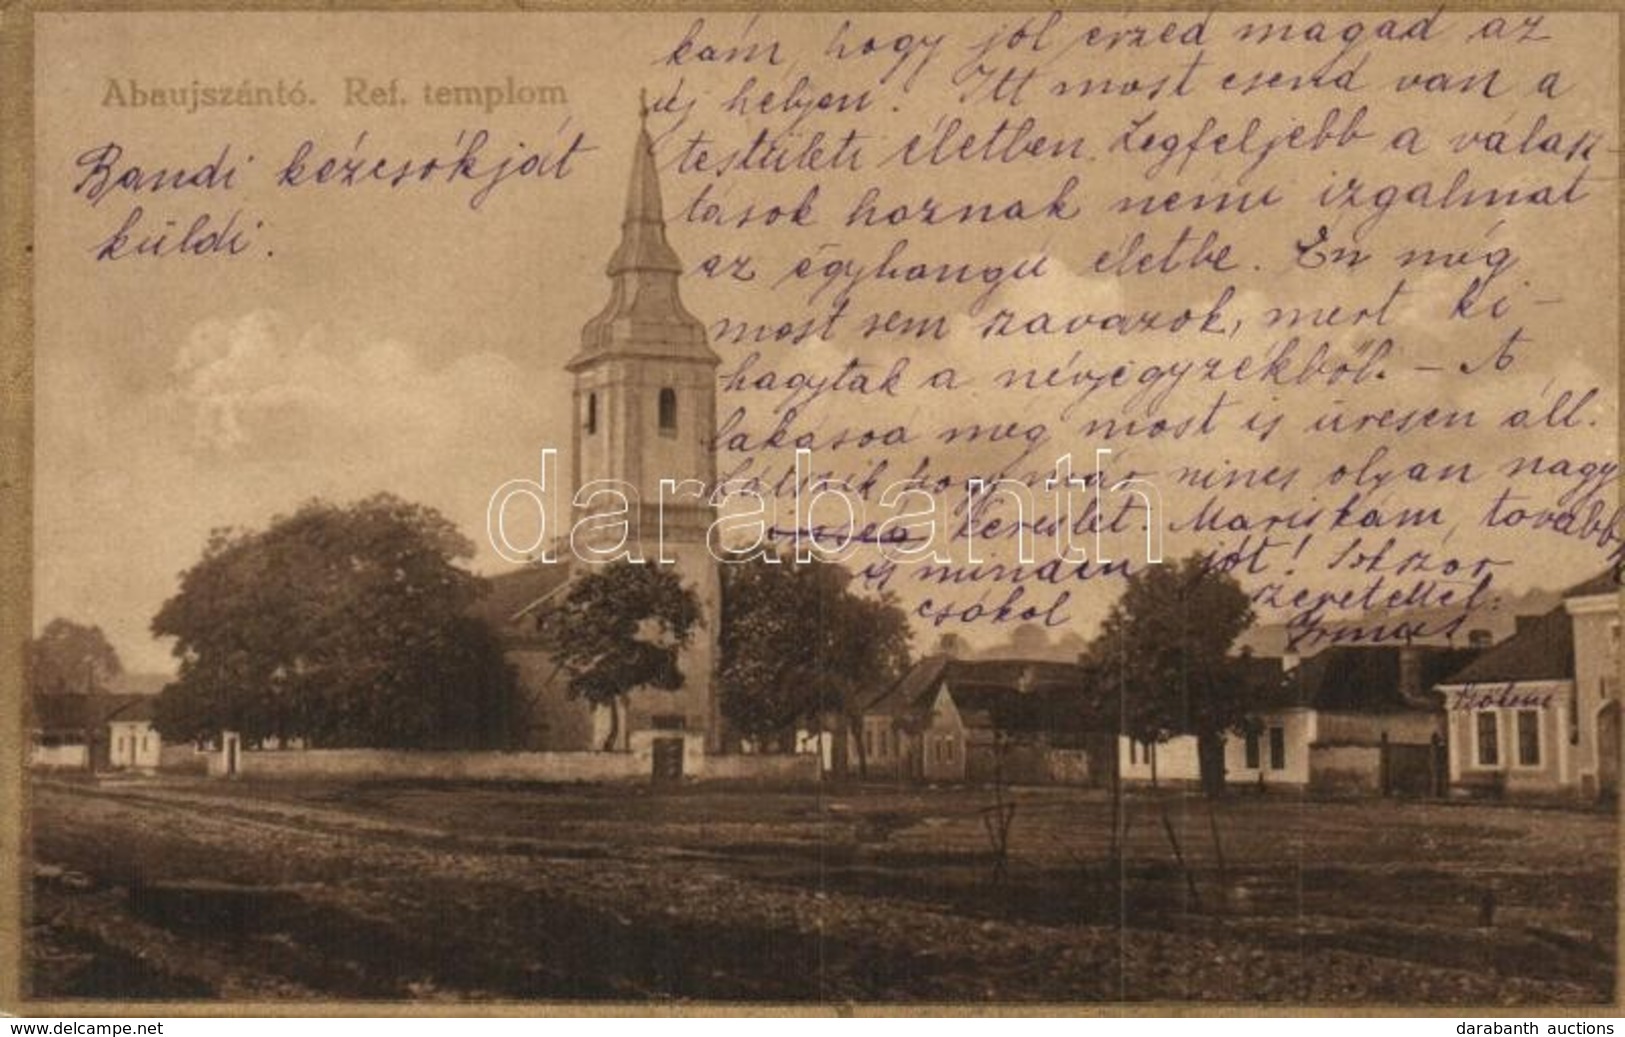 Abaujszántó. Ref. templom
Bandi kézcsókját
küldi.
kám, hogy jól érzed magad az
új helyen. Itt most csend van a
testületi életben. Legfeljebb a válasz-
tások hoznak némi izgalmat
az egyhangú életbe. Én még
most sem szavazok, mert ki-
hagytak a névjegyzékből. – A
lakásod még most is üresen áll.
Látszik hogy már nincs olyan nagy
kereslet. Mariskám, további
jót!
és minden
Sokszor
csókol
szeretettel:
Irma
darabanth
www.delcampe.net
darabanth auctions